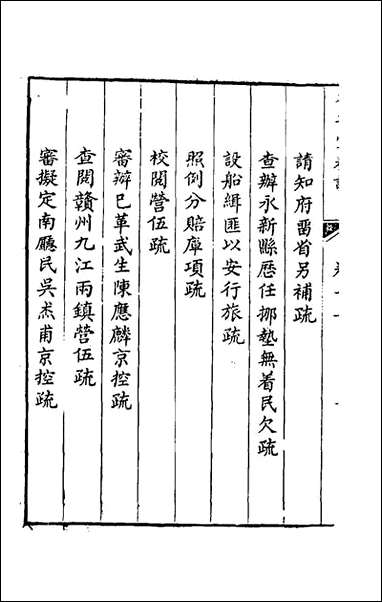 請知府畱省另補疏
查辦永新縣歷任挪墊無着民欠疏
設船緝匪以安行旅疏
照例分賠庫項疏
校閱營伍疏
審辦已革武生陳應麟京控疏
查閱贛州九江兩鎮營伍疏
審擬定南廳民吳烝甫京控疏